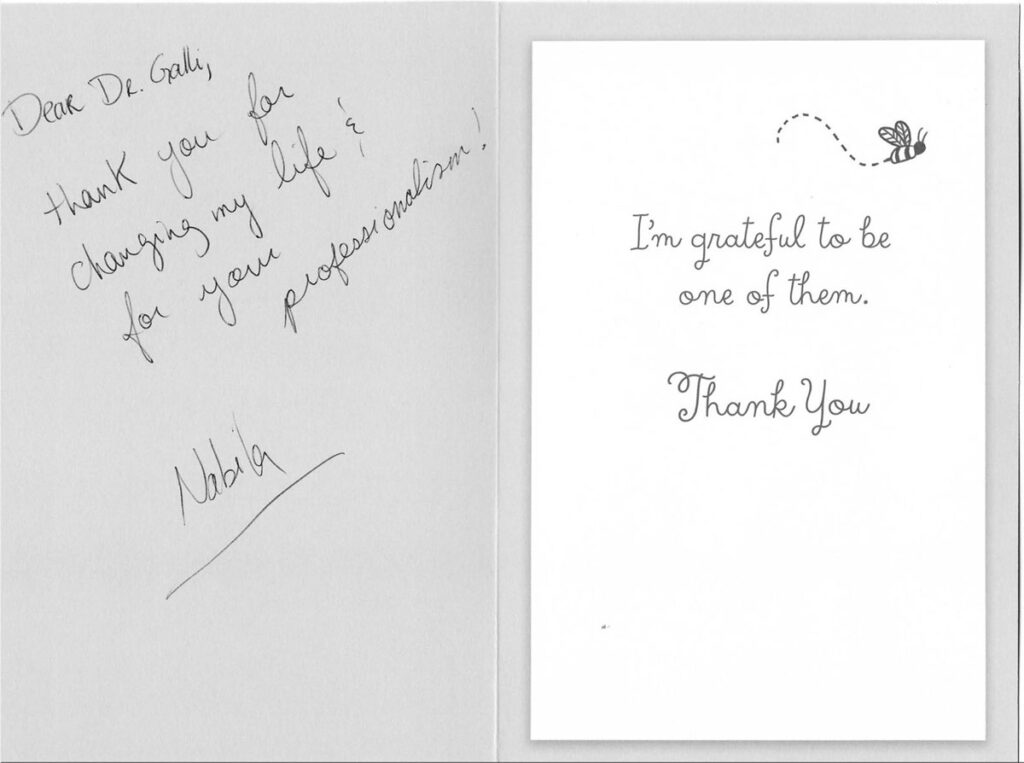 Dear Dr. Galli,
thank you for
changing my life &
for your
professionalism!
Nabila
I'm grateful to be
one of them.
Thank You